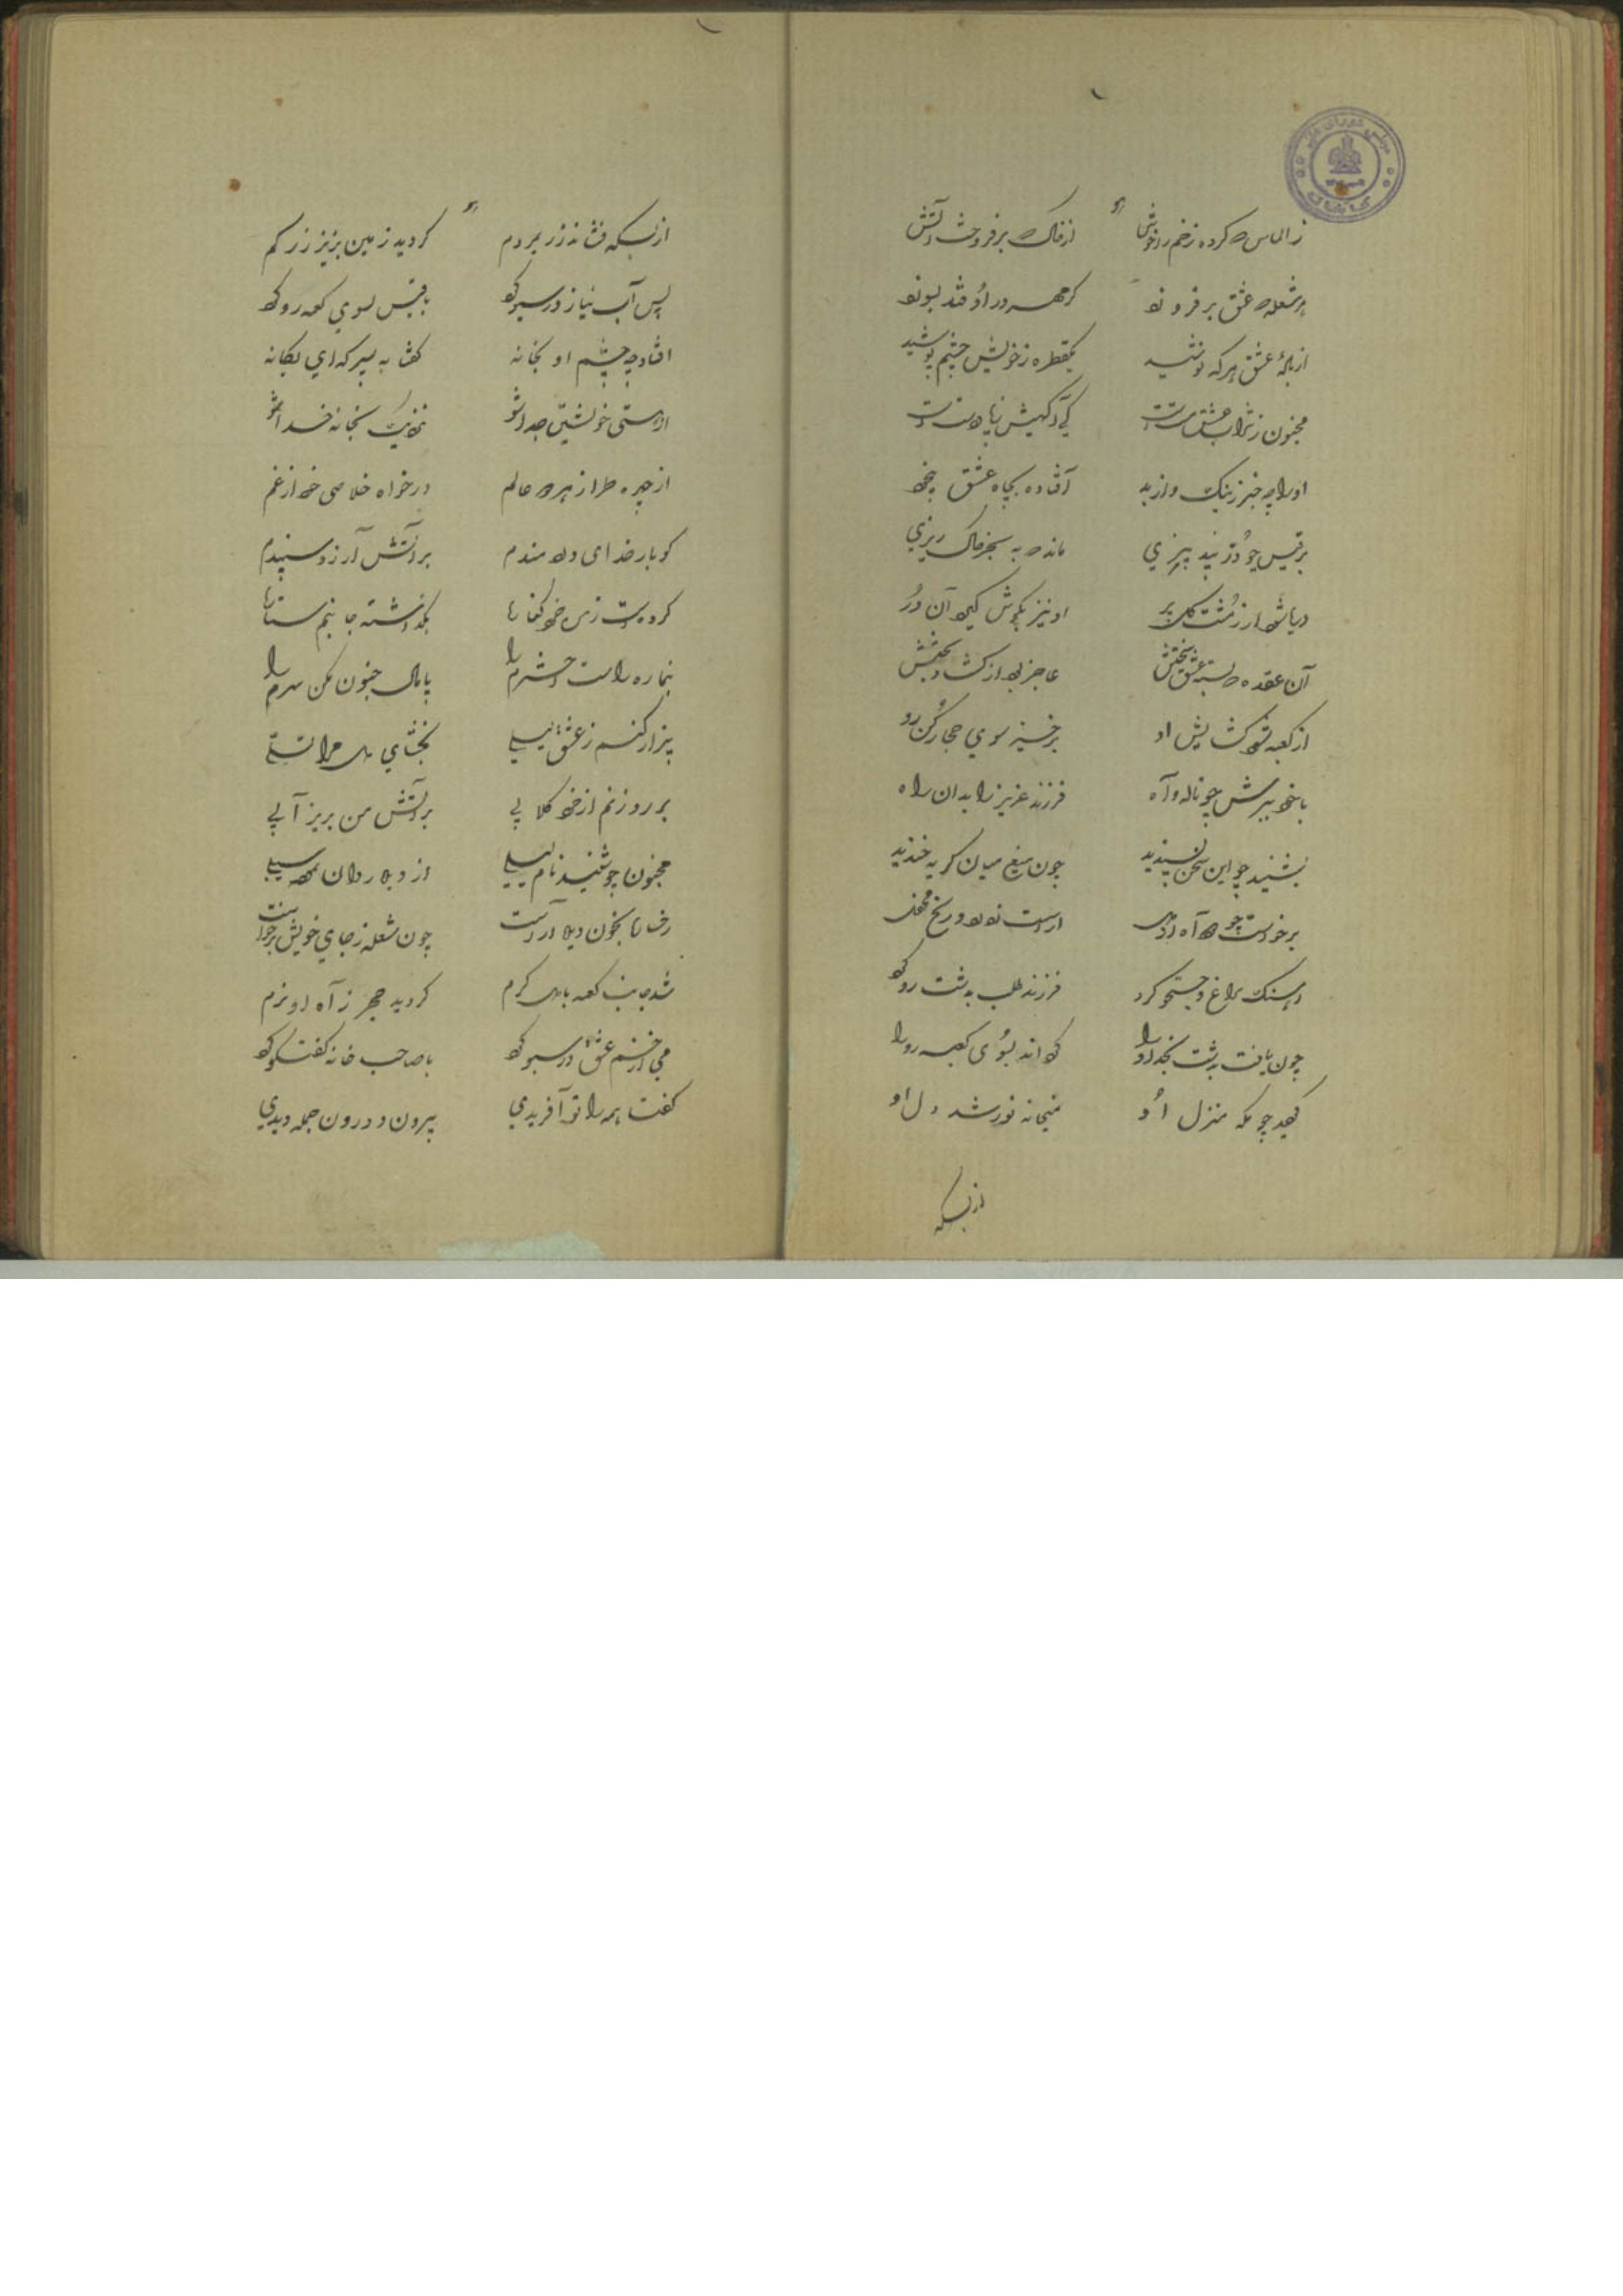 ز الماس کرده زخم را خوش از خاک برفروخت آتش
هر شعله عشق برفروزد گر مهر در او فتد بسوزد
از باده عشق هر که نوشید یکقطره ز خویش چشم پوشید
مجنون ز شراب عشق مست است
او را چه خبر ز نیک و از بد افتاده بچاه عشق بیخود
بر قیس چو در پند بیزی ماند به بجز خاک ریزی
او نیز بگوش آن در
آن عقده بسته عشق سختش عاجز از گشاد بختش
از کعبه شود گشایش او برخیز سوی حجاز کن رو
با خود ببرش چو ناله و آه فرزند عزیز را بدان راه
بشنید چو این سخن پسندید چون تیغ میان گریه خندید
برخاست چو آه از دل
در سنگ سراغ و جستجو کرد فرزند طلب بدشت رو کرد
چون یافت بدشت نجد او را گرداند بسوی کعبه رو را
گردید چو مکه منزل او میخانه نور شد دل او
از بسکه
از بسکه فشاند زر بمردم گردید زمین بزیر زر گم
پس آب نیاز در سبو کرد با قیس بسوی کعبه رو کرد
افتاد چو چشم او بخانه گفتا به پسر که ای یگانه
از هستی خویشتن جدا شو بخانه خدا شو
از چهره طراز هر دو عالم درخواه خلاصی خود از غم
گو بار خدای دردمندم بر آتش آرزو سپندم
کرده است ز من خود کنارا بگذاشته جانبم
بنما ره راست اخترم را پامال جنون مکن سرم را
بیزار کنم ز عشق لیلی بخشای دل مرا تسلی
بر رو زنم از خود گلابی بر آتش من بریز آبی
مجنون چو شنید نام لیلی از دیده روان نمود سیلی
رخ را بخون دیده آراست چون شعله ز جای خویش برخاست
شد جانب کعبه با دل گرم گردید حجر ز آه او نرم
می از خم عشق در سبو کرد با صاحب خانه گفتگو کرد
گفت ای همه را تو آفریدی بیرون و درون جمله دیدی